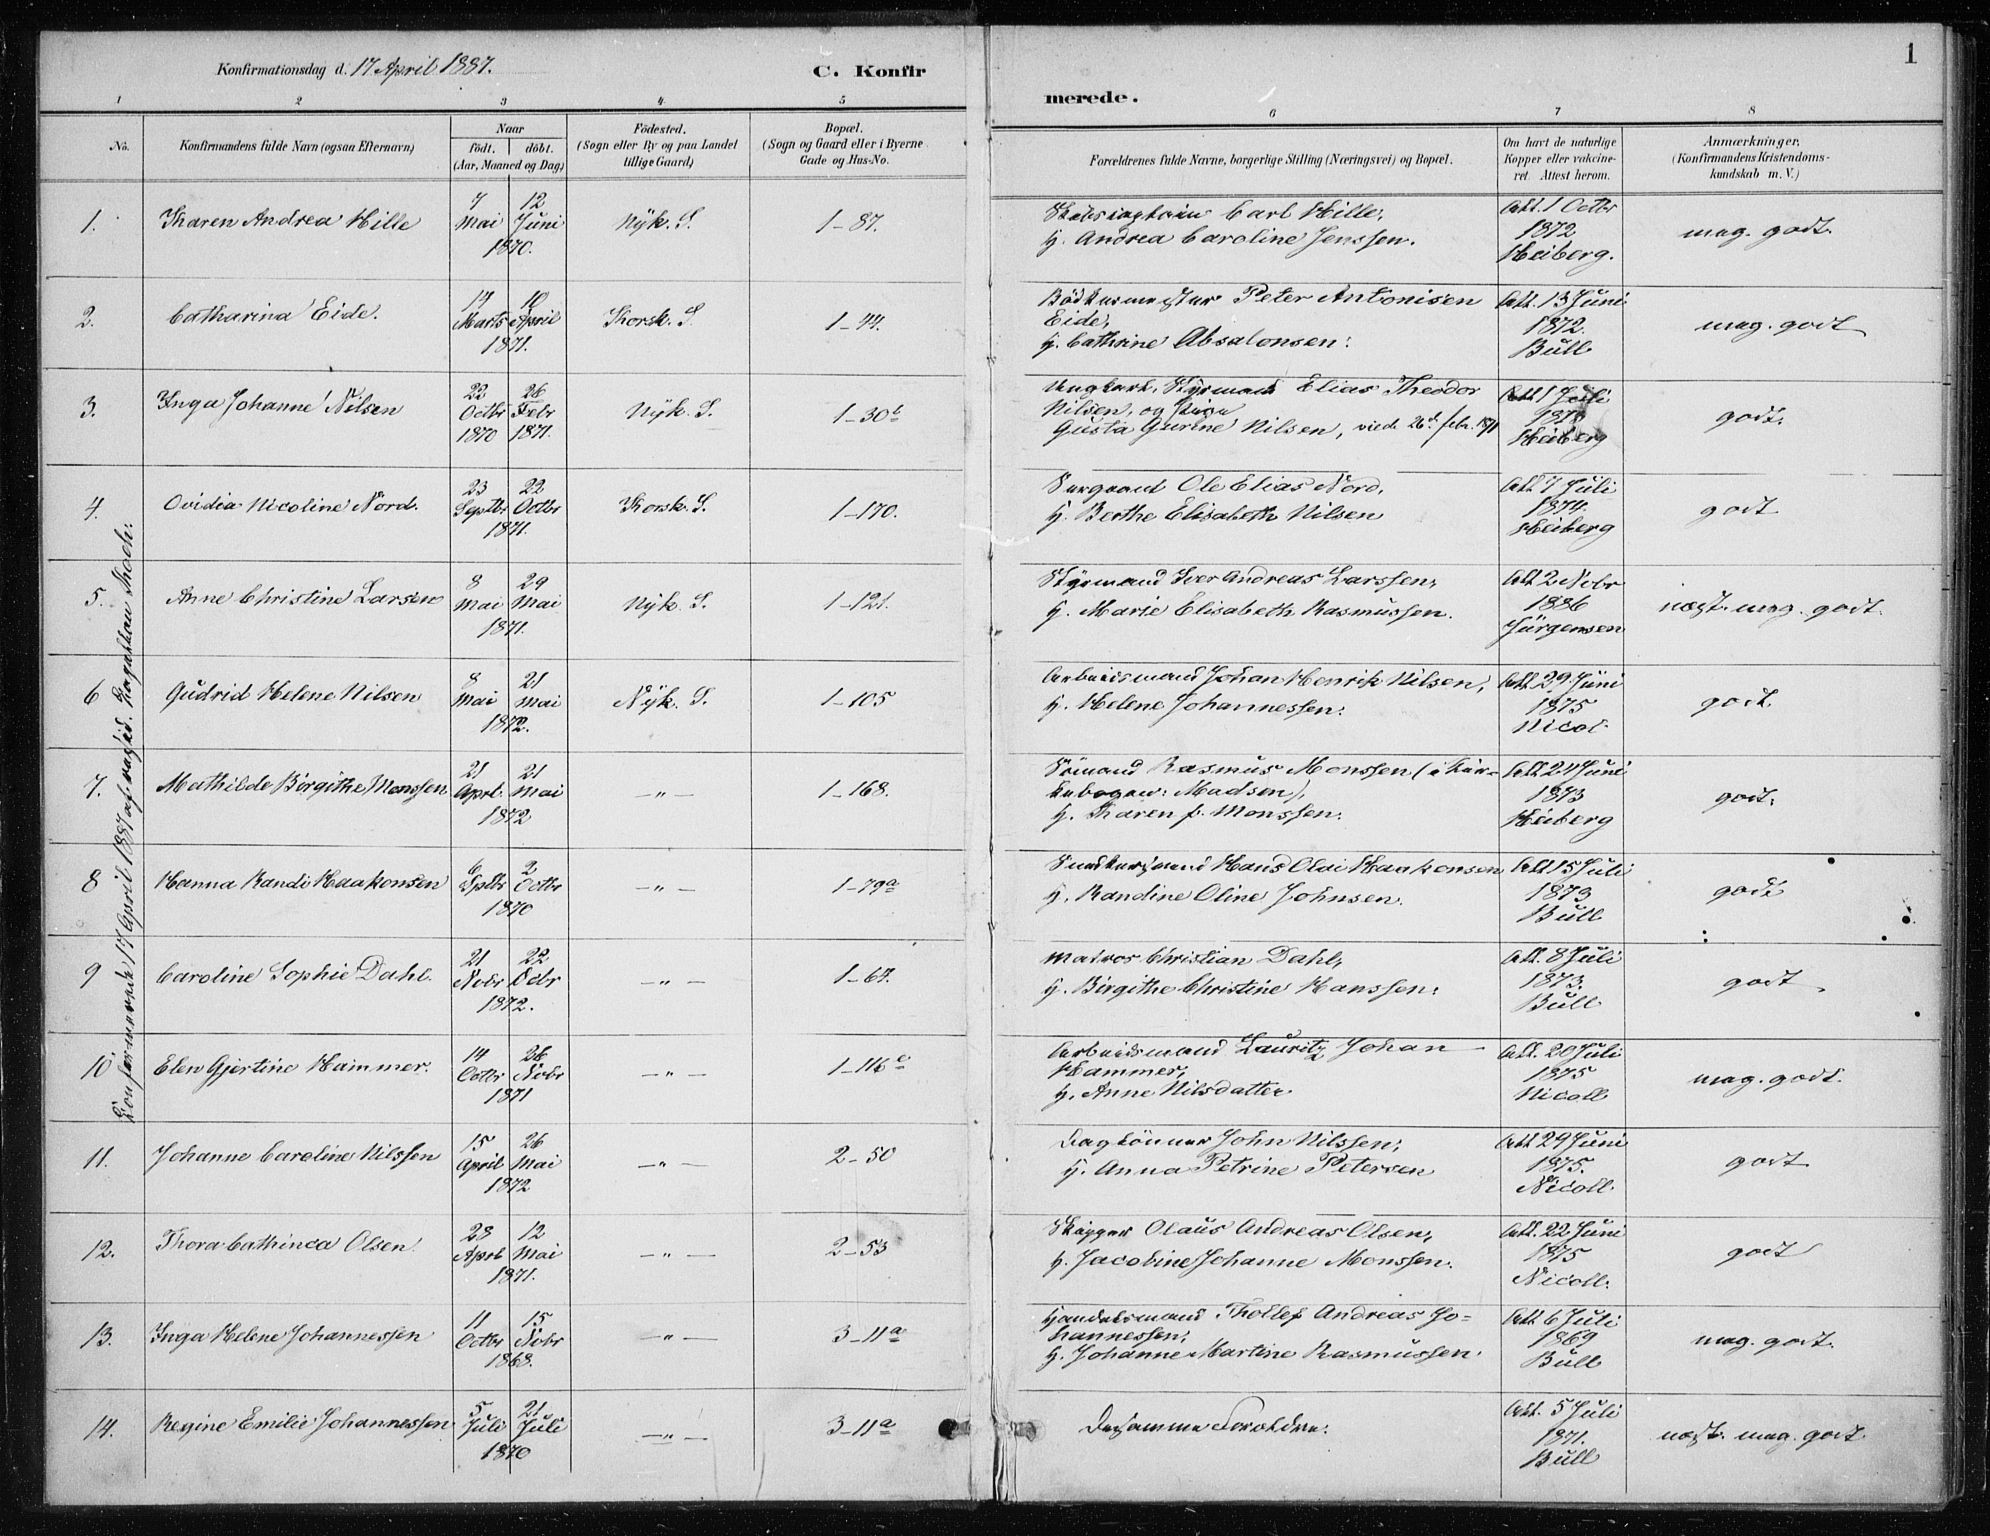 1
Konfirmationsdag d. 17 April 1887.
C. Konfirmerede.
1 2 3 4 5 6 7 8
No.
Konfirmandens fulde Navn (ogsaa Efternavn)
Naar
födt. döbt.
(Aar, Maaned og Dag)
Födested.
(Sogn eller By og paa Landet
tillige Gaard)
Bopæl.
(Sogn og Gaard eller i Byerne
Gade og Hus-No.
Forældrenes fulde Navne, borgerlige Stilling (Næringsvei) og Bopæl.
Om havt de naturlige
Kopper eller vakcine-
ret. Attest herom.
Anmærkninger.
(Konfirmandens Kristendoms-
kundskab m. V.)
Konfirmerede 17 April 1887 af
1. Karen Andrea Hille
7 Mai 12 Juni
1870.
Nyk. S.
1-87.
Carl Hille,
H. Andrea Caroline Jenssen.
Att. 1 Octbr
1872
Heiberg.
meg. godt.
2. Catharina Eide.
17 Marts 10 April
1871.
Korsk. S.
1-44.
Bödkermester Peter Antonisen
Eide,
H. Cathrine Absalonsen.
Att. 13 Juni
1872.
Bull
meg. godt
3. Inga Johanne Nilsen
22 Octbr 26 Febr
1870 1871.
Nyk. S.
1-30b
Ungkarl, Styrmand Elias Theodor
Nilsen, og Pige
Gusta Gurine Nilsen, viede 26d febr. 1871
Att 1 Juli
Heiberg
godt.
4. Ovidia Nicoline Nord.
23 Septbr 22 Octbr
1871.
Korsk. S.
1-170.
Sergeant Ole Elias Nord,
H. Berthe Elisabeth Nilsen
Att 7 Juli
1874.
Heiberg
godt
5. Anne Christine Larsen
8 Mai 29 Mai
1871.
Nyk. S.
1-121.
Styrmand Iver Andreas Larssen,
H. Marie Elisabeth Rasmussen.
Att 2 Nobr
1886
Jürgensen
næst. meg. godt.
6 Gudrid Helene Nilsen
8 Mai 21 Mai
1872.
Nyk. S.
1-105
Arbeidsmand Johan Henrik Nilsen,
H. Helene Johannessen.
Att. 29 Juni
1875
Nicol
godt
7. Mathilde Birgithe Monssen
21 Aprl. 21 Mai
1872
—"—
1-168.
Sömand Rasmus Monssen (i Kir-
kebogen: Madsen),
H. Karen f. Monssen.
Att 24 Juni
1873
Heiberg
godt.
8 Hanna Randi Haakonsen
6 Sptbr 2 Octbr
1870
—"—
1-79a
Hans Olai Haakonsen
H. Randine Oline Johnsen.
Att 15 Juli
1873
Bull
godt
9 Caroline Sophie Dahl.
21 Nobr 22 Dcbr
1872.
—"—
1-67.
Matros Christian Dahl,
H. Birgithe Christine Hanssen.
Att. 8 Juli
1873.
Bull
godt
10 Elen Gjertine Hammer.
14 Octbr 26 Nobr
1871
—"—
1-116c
Arbeidsmand Lauritz Johan
Hammer,
H. Anne Nilsdatter
Att. 20 Juli
1875
Nicoll
meg. godt.
11. Johanne Caroline Nilssen
15 April 26 Mai
1872
—"—
2-50
Daglönner John Nilssen,
H. Anna Petrine Petersen
Att 29 Juni
1875.
Nicoll.
godt
12. Thora Cathinca Olsen
28 Aprl 12 Mai
1871.
—"—
2-53
Skipper Olaus Andreas Olsen,
H. Jacobine Johanne Monssen.
Att. 22 Juni
1875
Nicoll.
godt
13. Inga Helene Johannessen
11 Octbr 15 Nobr
1868.
—"—
3-11a
Handelsmand Thollef Andreas Jo-
hannessen,
H. Johanne Martine Rasmussen.
Att 6 Juli
1869
Bull
meg. godt.
14. Regine Emilie Johannessen
5 Juli 21 Juli
1870
—"—
3-11a
Desamme Forældre.
Att. 5 Juli
1871.
Bull
næst. meg. godt